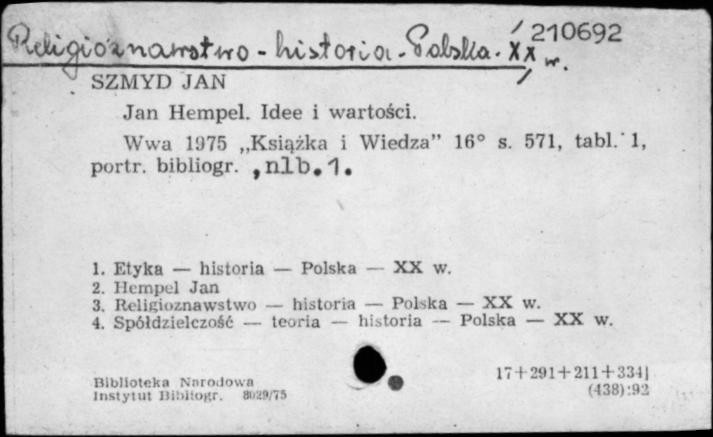 Religioznawstwo - historia - Polska - XX w.
210692
SZMYD JAN
Jan Hempel. Idee i wartości.
Wwa 1975 „Książka i Wiedza” 16° s. 571, tabl. 1,
portr. bibliogr. ,nlb.1.
1. Etyka — historia — Polska — XX w.
2. Hempel Jan
3. Religioznawstwo — historia — Polska — XX w.
4. Spółdzielczość — teoria — historia — Polska — XX w.
17+291+211+334]
(438):92
Biblioteka Narodowa
Instytut Bibliogr. 8029/75